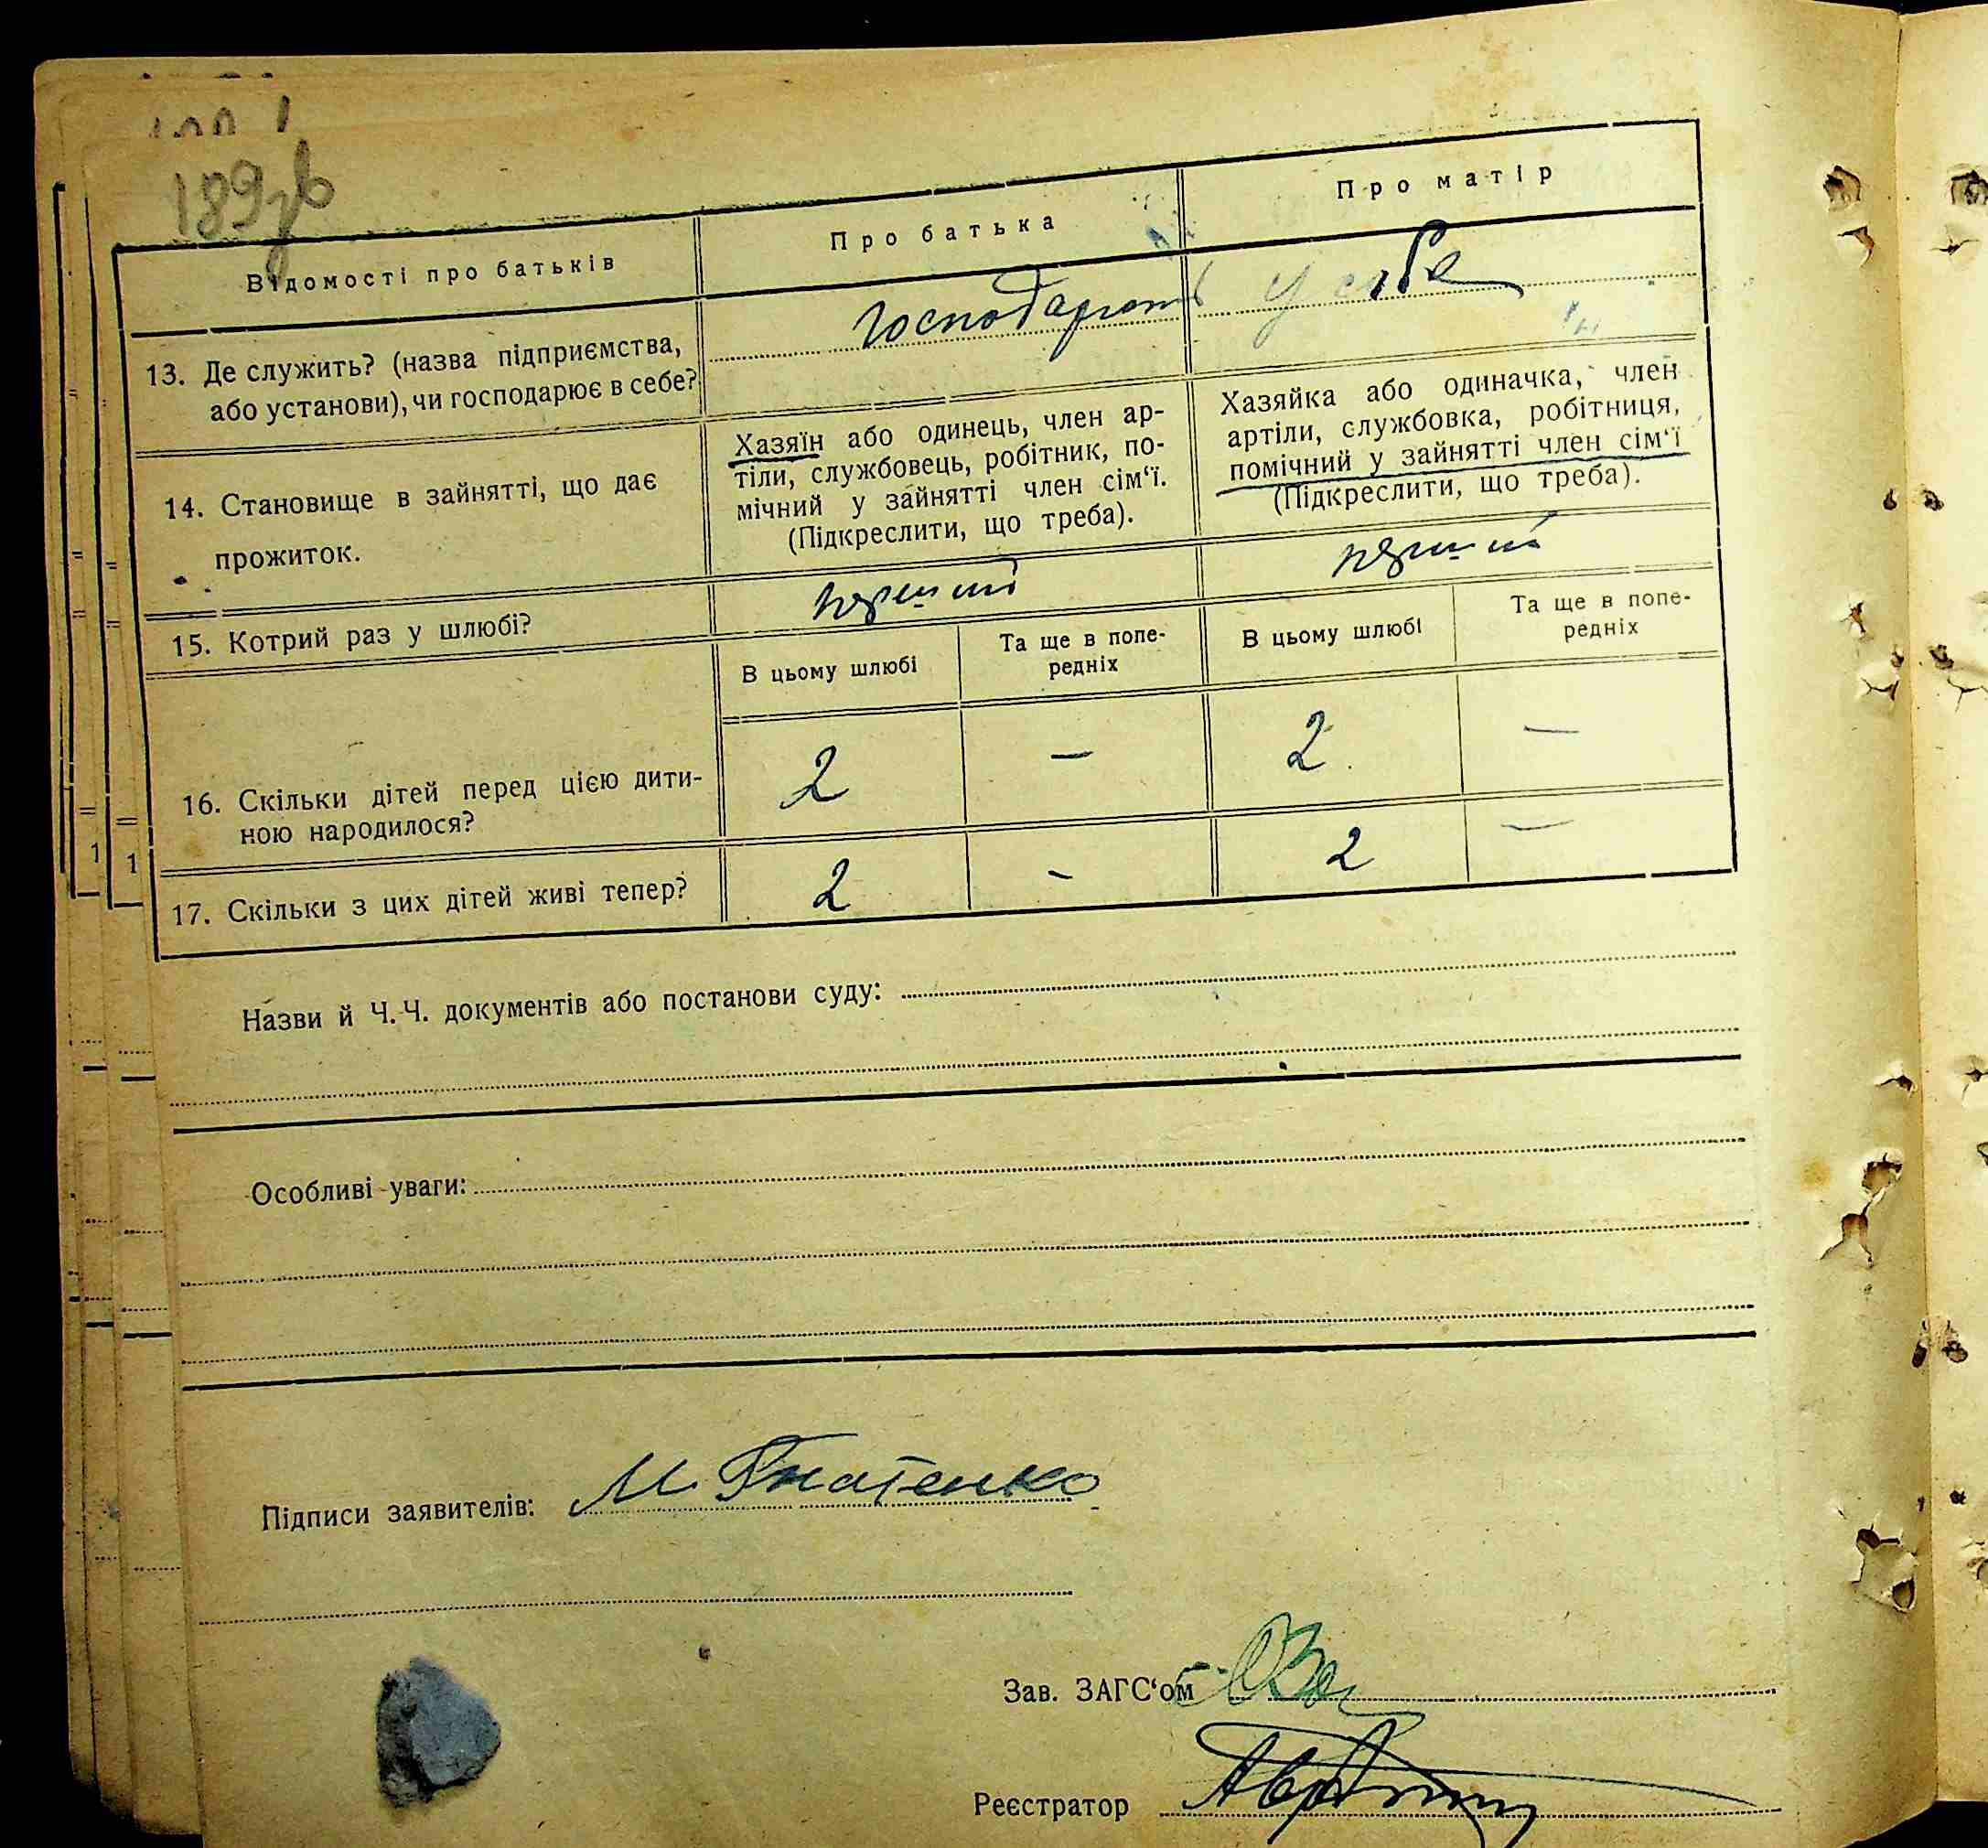 189 зв
Відомості про батьків
Про батька
Про матір
13. Де служить? (назва підприємства,
або установи), чи господарює в себе?
господарюють у себе
14. Становище в зайнятті, що дає
прожиток.
Хазяїн або одинець, член ар-
тіли, службовець, робітник, по-
мічний у зайнятті член сім‘ї.
(Підкреслити, що треба).
Хазяйка або одиначка, член
артіли, службовка, робітниця,
помічний у зайнятті член сім‘ї
(Підкреслити, що треба).
15. Котрий раз у шлюбі?
перший
перший
В цьому шлюбі
Та ще в попе-
редніх
В цьому шлюбі
Та ще в попе-
редніх
16. Скільки дітей перед цією дити-
ною народилося?
2 — 2 —
17. Скільки з цих дітей живі тепер?
2 - 2 —
Назви й Ч.Ч. документів або постанови суду:
Особливі уваги:
Підписи заявителів: М Гнатенко
Зав. ЗАГС‘ом
Реєстратор